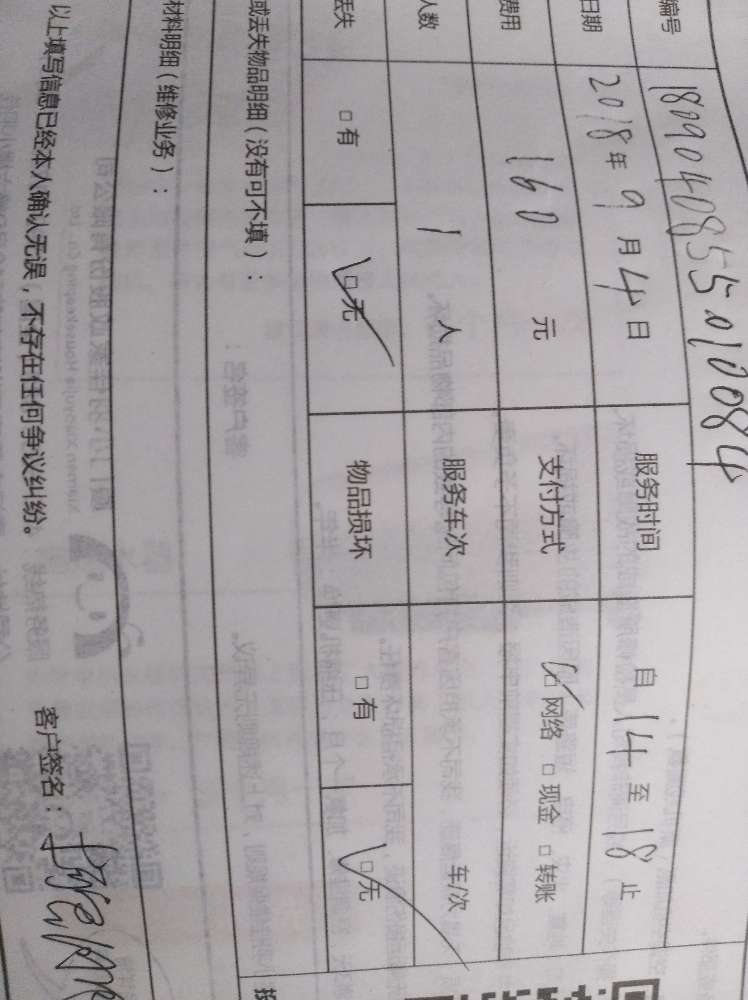 编号 1809040855010084
日期 2018年9月4日 服务时间 自14至18止
费用 160元 支付方式 □网络 □现金 □转账
人数 1人 服务车次 车/次
丢失 □有 □无 物品损坏 □有 □无
或丢失物品明细（没有可不填）：
材料明细（维修业务）：
以上填写信息已经本人确认无误，不存在任何争议纠纷。 客户签名：